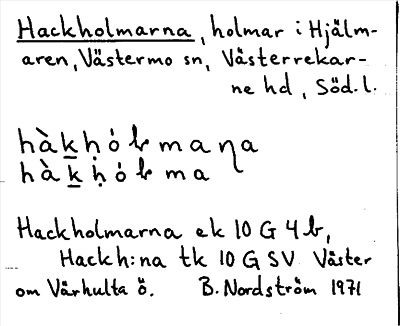 Hackholmarna, holmar i Hjälm-
aren, Västermo sn, Västerrekar-
ne hd, Söd. l.
hàk̲ḥȯɫmaɳa
hàk̲ḥȯɫma
Hackholmarna ek 10 G 4 b,
Hackh:na tk 10 G SV Väster
om Vårhulta ö. B. Nordström 1971